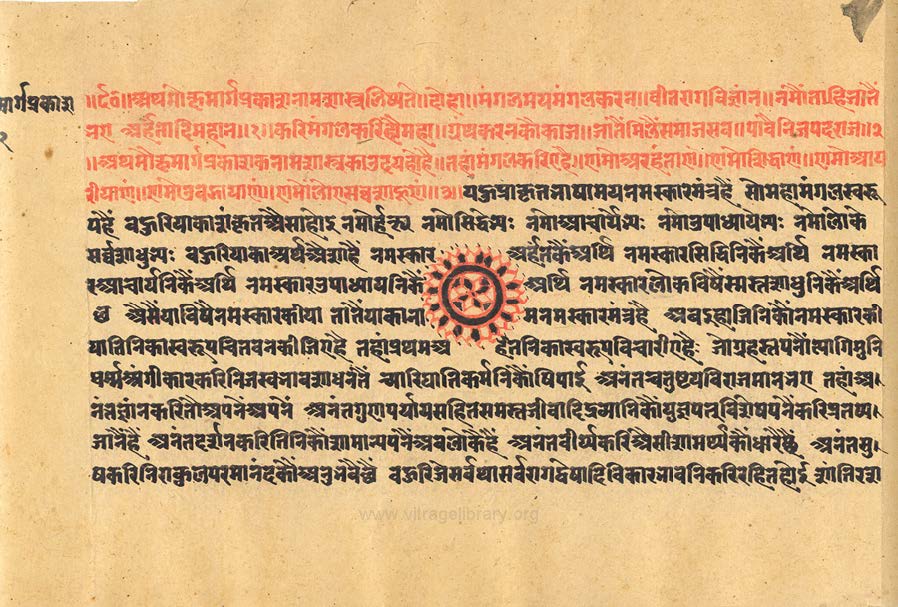 मार्गप्रकाश
१
॥८०॥अथमोक्षमार्गप्रकाशनामशास्त्रलिष्यते॥दोहा॥मंगलमयमंगलकरन॥वीतरागविज्ञान॥नमौंताहिजातैं
नए अर्हंतादिमहान॥१॥करिमंगलकरिहौंमहा॥ग्रंथकरनकौकाज॥जातैंमिलैंसमाजसब॥पावैनिजपदराज॥२
॥अथमोक्षमार्गप्रकाशकनामशास्त्रकाउदयहोहै॥तहांमंगलकरिएहै॥णमोअरहंताणं॥णमोसिद्धाणं॥णमोआय
रीयाणं॥णमोउवज्झायाणं॥णमोलोएसव्वसाहूणं॥१॥यहुप्राकृतभाषामयनमस्कारमंत्रहै सोमहामंगलस्वरू
पहै बहुरियाकासंस्कृतऐसाहोइ नमोर्हद्भ्यः नमोसिद्धेभ्यः नमोआचार्येभ्यः नमोउपाध्यायेभ्यः नमोलोके
सर्व्वसाधुभ्यः बहुरियाकाअर्थऐसाहै नमस्कार अर्हंतनिकैंअर्थि नमस्कारसिद्धिनिकैंअर्थि नमस्का
रआचार्यनिकैंअर्थि नमस्कारउपाध्यायनिकैं अर्थि नमस्कारलोकविषैंसमस्तसाधुनिकैंअर्थि
ऐसैंयाविषैनमस्कारकीया तातैंयाकाना मनमस्कारमंत्रहै अबइहाजिनिकौंनमस्कारकी
यातिनिकास्वरूपचिंतवनकीजिएहै तहांप्रथमअ र्हंतनिकास्वरूपविचारीएहै जोगृहस्तपनौंत्यागिमुनि
धर्म्मअंगीकारकरिनिजस्वभावसाधनतैं च्यारिघातिकर्मनिकौंषिपाई अनंतचतुष्टयविराजमानभए तहांअ
नंतज्ञानकरितौअपनेंअपनें अनंतगुणपर्यायसहितसमस्तजीवादिद्रव्यनिकौंयुगपत्विशेषपनेंकरिप्रतष्य
जानैंहैं अनंतदर्शनकरितिनिकौंसामान्यपनेंअवलोकैहैं अनंतवीर्य्यकरिऐसीसामर्थ्यकौंधारैहैं अनंतसु
षकरिनिराकुलपरमानंदकौंअनुभवैहैं बहुरिजेसर्वथासर्वरागद्वेषादिविकारभावनिकरिरहितहोइ शांतिरसरू
www.vitragelibrary.org